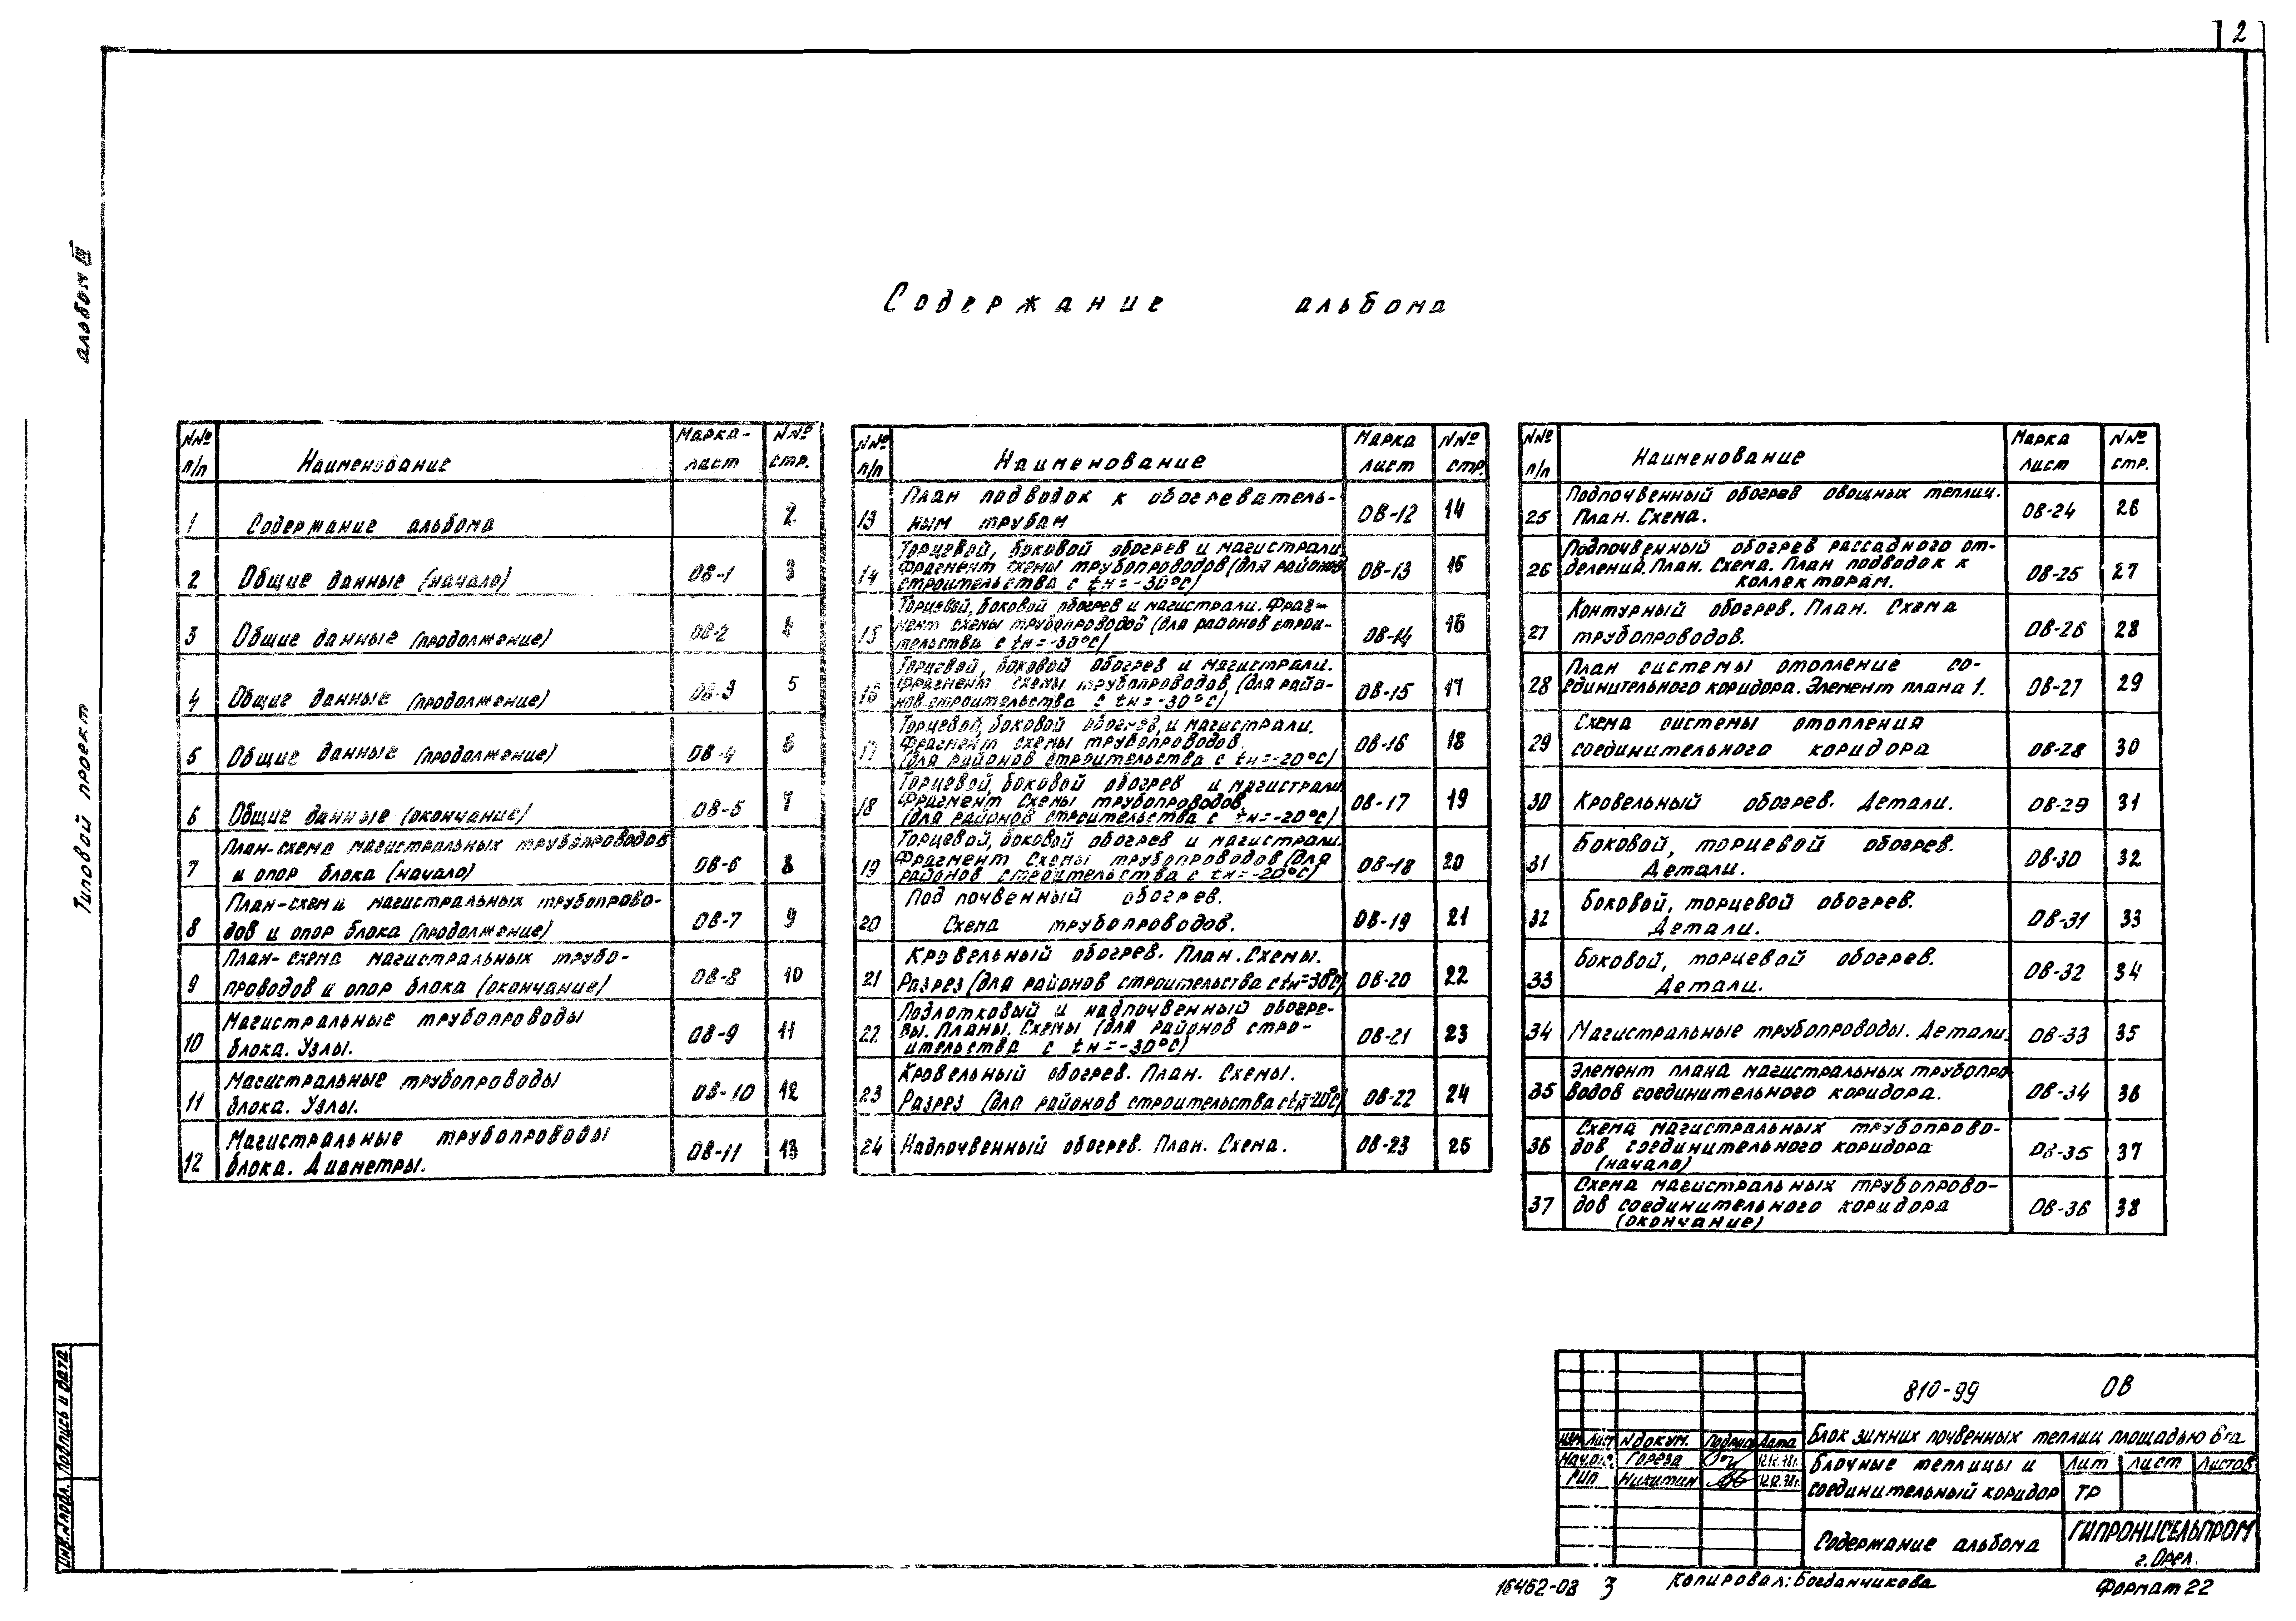 2
альбом IV
Типовой проект
Содержание альбома
N№ п/п Наименование Марка-лист N№ стр.
1 Содержание альбома 2
2 Общие данные (начало) ОВ-1 3
3 Общие данные (продолжение) ОВ-2 4
4 Общие данные (продолжение) ОВ-3 5
5 Общие данные (продолжение) ОВ-4 6
6 Общие данные (окончание) ОВ-5 7
План-схема магистральных трубопроводов
7 и опор блока (начало) ОВ-6 8
План-схема магистральных трубопрово-
8 дов и опор блока (продолжение) ОВ-7 9
План-схема магистральных трубо-
9 проводов и опор блока (окончание) ОВ-8 10
Магистральные трубопроводы
10 блока. Узлы. ОВ-9 11
Магистральные трубопроводы
11 блока. Узлы. ОВ-10 12
Магистральные трубопроводы
12 блока. Диаметры. ОВ-11 13
N№ п/п Наименование Марка лист N№ стр.
План подводок к обогреватель-
13 ным трубам ОВ-12 14
Торцевой, боковой обогрев и магистрали.
14 Фрагмент схемы трубопроводов (для районов ОВ-13 15
строительства с tн=-30°С)
Торцевой, боковой обогрев и магистрали. Фраг-
15 мент схемы трубопроводов (для районов строи- ОВ-14 16
тельства с tн=-30°С)
Торцевой, боковой обогрев и магистрали.
16 Фрагмент схемы трубопроводов (для райо- ОВ-15 17
нов строительства с tн=-30°С)
Торцевой, боковой обогрев, и магистрали.
17 Фрагмент схемы трубопроводов. ОВ-16 18
(для районов строительства с tн=-20°С)
Торцевой, боковой обогрев и магистрали
18 Фрагмент схемы трубопроводов. ОВ-17 19
(для районов строительства с tн=-20°С)
Торцевой, боковой обогрев и магистрали.
19 Фрагмент схемы трубопроводов (для ОВ-18 20
районов строительства с tн=-20°С)
Подпочвенный обогрев.
20 Схема трубопроводов. ОВ-19 21
Кровельный обогрев. План. Схемы.
21 Разрез (для районов строительства с tн=-30°С) ОВ-20 22
Подлотковый и надпочвенный обогре-
22 вы. Планы. Схемы (для районов стро- ОВ-21 23
ительства с tн=-30°С)
Кровельный обогрев. План. Схемы.
23 Разрез (для районов строительства с tн=-20°С) ОВ-22 24
24 Надпочвенный обогрев. План. Схема. ОВ-23 25
N№ п/п Наименование Марка лист N№ стр.
Подпочвенный обогрев овощных теплиц.
25 План. Схема. ОВ-24 26
Подпочвенный обогрев рассадного от-
26 деления. План. Схема. План подводок к ОВ-25 27
коллекторам.
Контурный обогрев. План. Схема
27 трубопроводов. ОВ-26 28
План системы отопление со-
28 единительного коридора. Элемент плана 1. ОВ-27 29
Схема системы отопления
29 соединительного коридора ОВ-28 30
30 Кровельный обогрев. Детали. ОВ-29 31
Боковой, торцевой обогрев.
31 Детали. ОВ-30 32
Боковой, торцевой обогрев.
32 Детали. ОВ-31 33
Боковой, торцевой обогрев.
33 Детали. ОВ-32 34
34 Магистральные трубопроводы. Детали. ОВ-33 35
Элемент плана магистральных трубопро
35 водов соединительного коридора. ОВ-34 36
Схема магистральных трубопрово-
36 дов соединительного коридора ОВ-35 37
(начало)
Схема магистральных трубопрово-
37 дов соединительного коридора ОВ-36 38
(окончание)
810-99 ОВ
Блок зимних почвенных теплиц площадью 6га
Изм Лист N докум. Подпись Дата
Нач.отд. Горева 12.12.78г.
ГИП Никитин 12.12.78г.
Блочные теплицы и
соединительный коридор
Лит Лист Листов
ТР
Содержание альбома
ГИПРОНИСЕЛЬПРОМ
г. Орел.
Инв.N подл. Подпись и дата
16462-03 3 Копировал: Богданчикова Формат 22